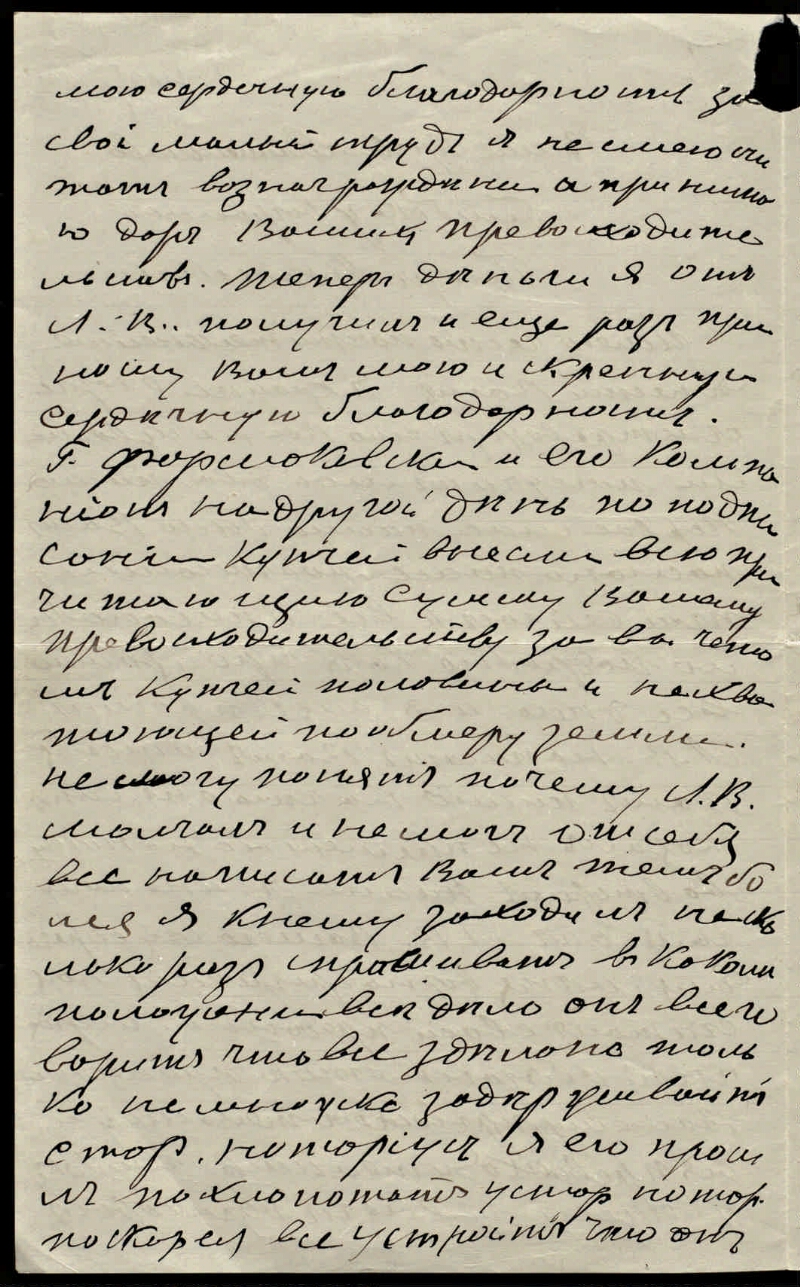 мою сердечную благодарность за
свой малый трудъ я не смею счи
тать вознаграждение а принима
ю даръ Вашихъ превосходите
льства. теперь деньги я отъ
Л. В.. получилъ и еще разъ при
ношу Вамъ мою искренную
сердечную благодарность.
Г. Формаковска и его Компа
ніонъ на другой день по подпи
саніи Купчей внесли всю при
читающую сумму Вашему
превосходительству за вычето
мъ Купчей половины и нехва
тающей по обмеру земли.
не могу понять почему Л. В.
молчалъ и не могъ отъ себя
все написать Вамъ темъ бо
лея я к нему заходилъ неско
лько разъ спрашивать в какомъ
положении все дело онъ все го
воритъ что все зделано толь
ко немножко задерживаитъ
стар. нотаріусъ я его проси
лъ похлопотать у стар нотар.
поскорея все устроить что онъ